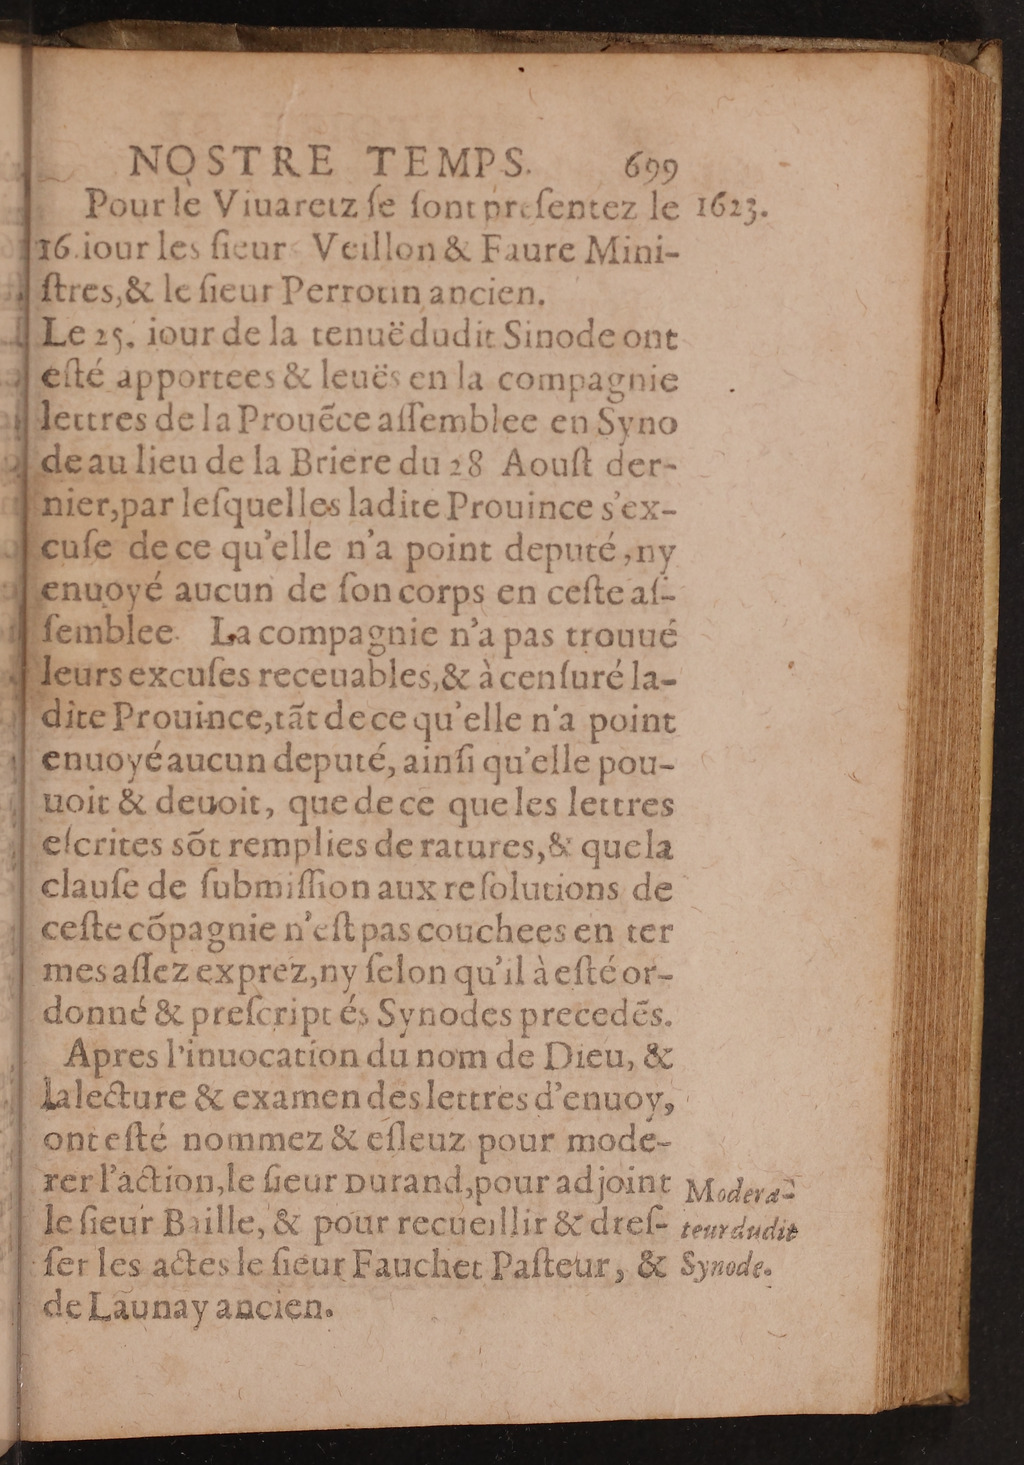 NOSTRE TEMPS. 699
Pour le Viuaretz ſe ſont preſentez le 1623.
16. iour les ſieurs Veillon & Faure Mini-
ſtres, & le ſieur Perrotin ancien.
Le 25. iour de la tenuë dudit Sinode ont
eſté apportees & leuës en la compagnie
lettres de la Prouẽce aſſemblee en Syno
de au lieu de la Briere du 28 Aouſt der-
nier, par leſquelles ladite Prouince s'ex-
cuſe de ce qu'elle n'a point deputé, ny
enuoyé aucun de ſon corps en ceſte aſ-
ſemblee. La compagnie n'a pas trouué
leurs excuſes receuables, & à cenſuré la-
dite Prouince, tãt de ce qu'elle n'a point
enuoyé aucun deputé, ainſi qu'elle pou-
uoit & deuoit, que de ce que les lettres
eſcrites sõt remplies de ratures, & que la
clauſe de ſubmiſſion aux reſolutions de
ceſte cõpagnie n'eſt pas couchees en ter
mes aſſez exprez, ny ſelon qu'il à eſté or-
donné & preſcript és Synodes precedẽs.
Apres l'inuocation du nom de Dieu, &
la lecture & examen des lettres d'enuoy,
ont eſté nommez & eſleuz pour mode-
rer l'action, le ſieur Durand, pour adjoint
le ſieur Baille, & pour recueillir & dreſ-
ſer les actes le ſieur Faucher Paſteur, &
de Launay ancien.
Modera-
teur dudit
Synode.